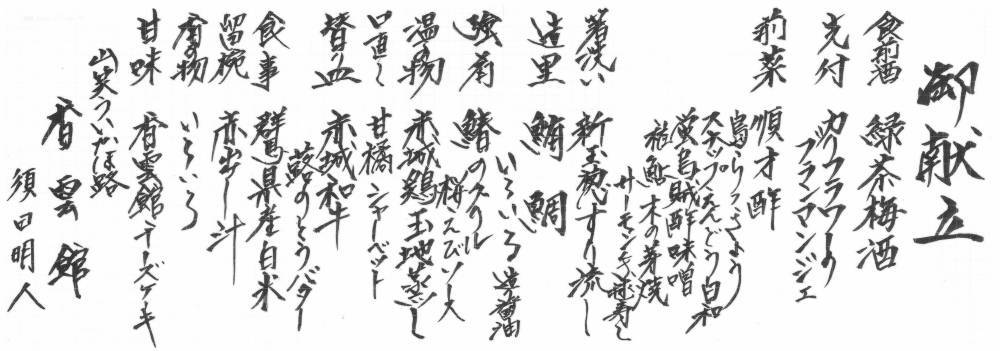 御献立
食前酒 緑茶梅酒
先付 カリフラワーの
ブランマンジェ
前菜 順才酢
島らっきょう
スナップえんどう白和
蛍烏賊酢味噌
木の芽焼
サーモン手毬寿し
箸洗い 新玉葱すり流し
造里 鮪 鯛
いろいろ 造醤油
強肴 鰆のポワル
桜えびソース
温物 赤城鶏玉地蒸し
口直し 甘橘シャーベット
替り皿 赤城和牛
蕗のとうバター
食事 群馬県産白米
留椀 赤出し汁
香の物 いろいろ
甘味 香雲館チーズケーキ
山笑ういかほ路
香雲館
須田明人